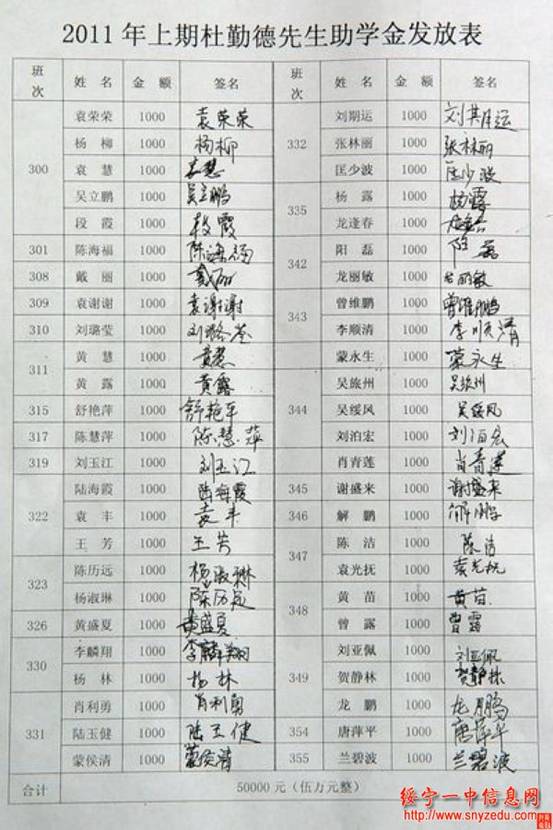 2011年上期杜勤德先生助学金发放表
班次 姓名 金额 签名 班次 姓名 金额 签名
300 袁荣荣 1000 袁荣荣 332 刘期运 1000 刘其月运
杨柳 1000 杨柳 张林丽 1000 张林丽
袁慧 1000 袁慧 335 匡少波 1000 匡少波
吴立鹏 1000 吴立鹏 杨露 1000 杨露
段霞 1000 段霞 342 龙逢春 1000
301 陈海福 1000 陈海福 阳磊 1000 阳磊
308 戴丽 1000 戴丽 343 龙丽敏 1000 龙丽敏
309 袁谢谢 1000 袁谢谢 曾维鹏 1000 曾维鹏
310 刘璐莹 1000 刘璐莹 李顺清 1000 李顺清
311 黄慧 1000 黄慧 344 蒙永生 1000 蒙永生
黄露 1000 黄露 吴旅州 1000 吴旅州
315 舒艳萍 1000 舒艳平 吴绥风 1000 吴绥风
317 陈慧萍 1000 陈慧萍 刘泊宏 1000 刘泊宏
319 刘玉江 1000 刘玉江 肖青莲 1000 肖青莲
322 陆海霞 1000 陆海霞 345 谢盛来 1000 谢盛来
袁丰 1000 袁丰 346 解鹏 1000 解鹏
王芳 1000 王芳 347 陈洁 1000 陈洁
323 陈历远 1000 杨淑琳 袁光抚 1000 袁光抚
杨淑琳 1000 陈历远 348 黄苗 1000 黄苗
326 黄盛夏 1000 黄盛夏 曾露 1000 曾露
330 李麟翔 1000 李麟翔 349 刘亚佩 1000 刘亚佩
杨林 1000 杨林 贺静林 1000 贺静林
331 肖利勇 1000 肖利勇 龙鹏 1000 龙鹏
陆玉健 1000 陆玉健 354 唐萍平 1000 唐萍平
蒙侯清 1000 蒙侯清 355 兰碧波 1000 兰碧波
合计 50000元（伍万元整）
绥宁一中信息网
www.snyzedu.com